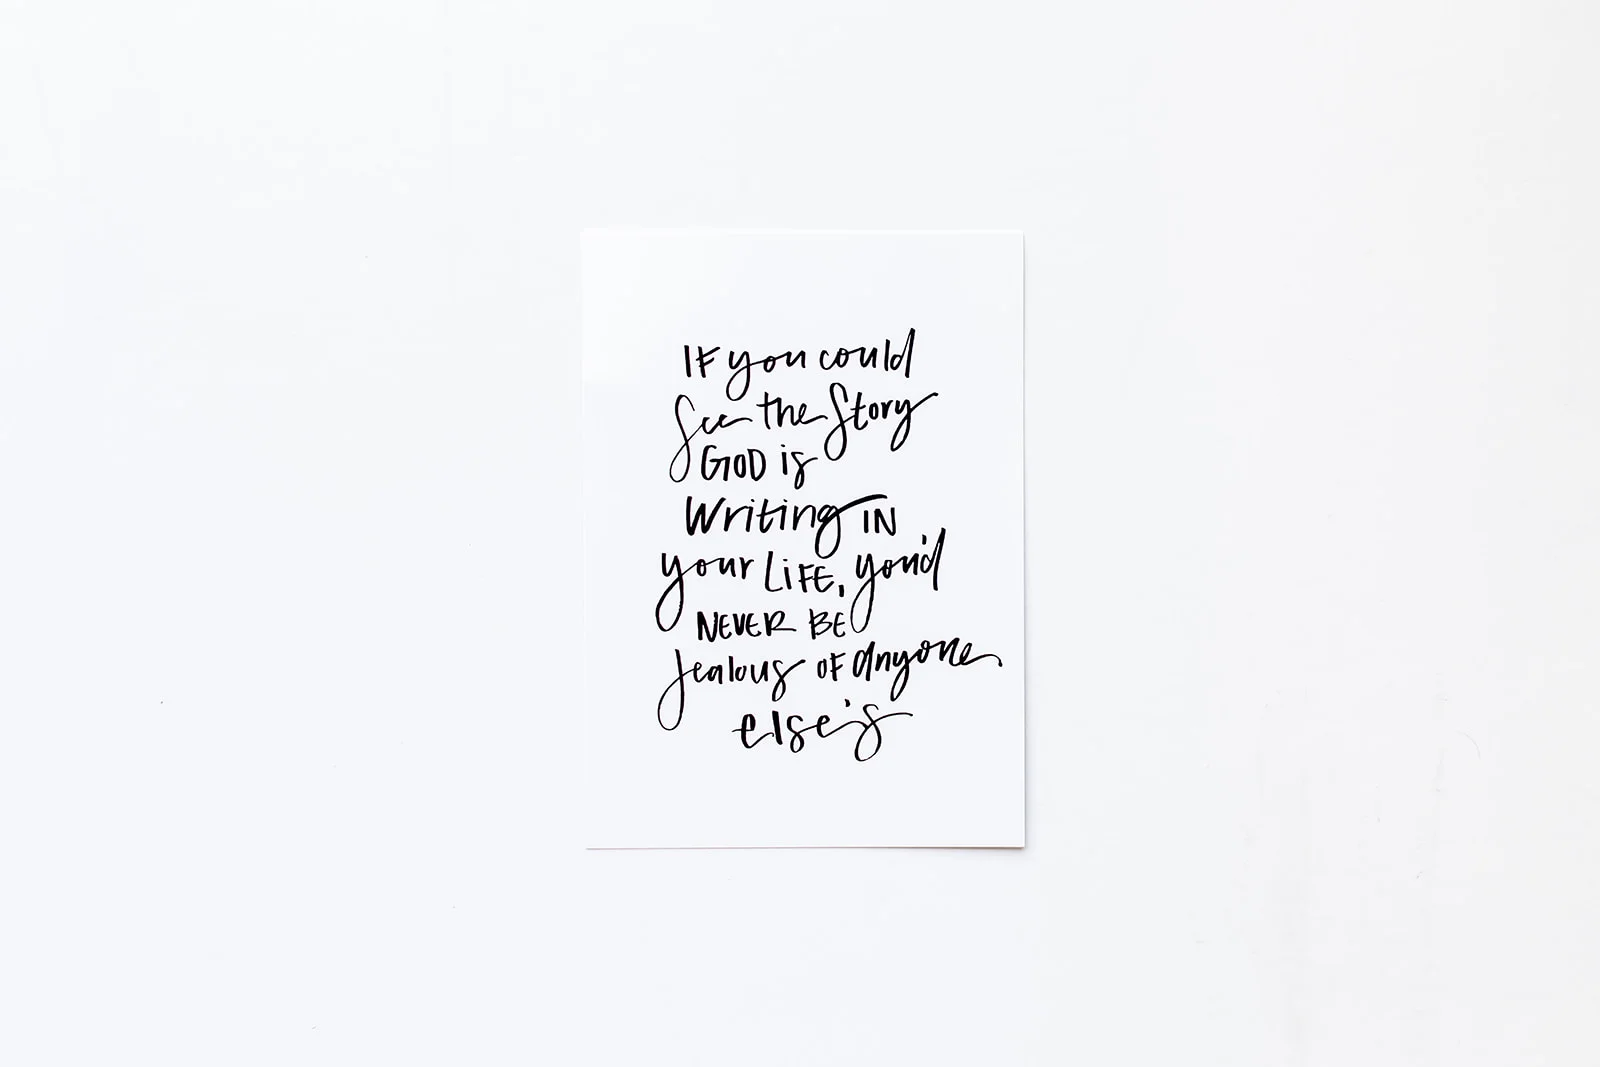 IF you could
See the Story
GOD is
Writing IN
your LiFE, you'd
NEVER BE
Jealous OF anyone
else's